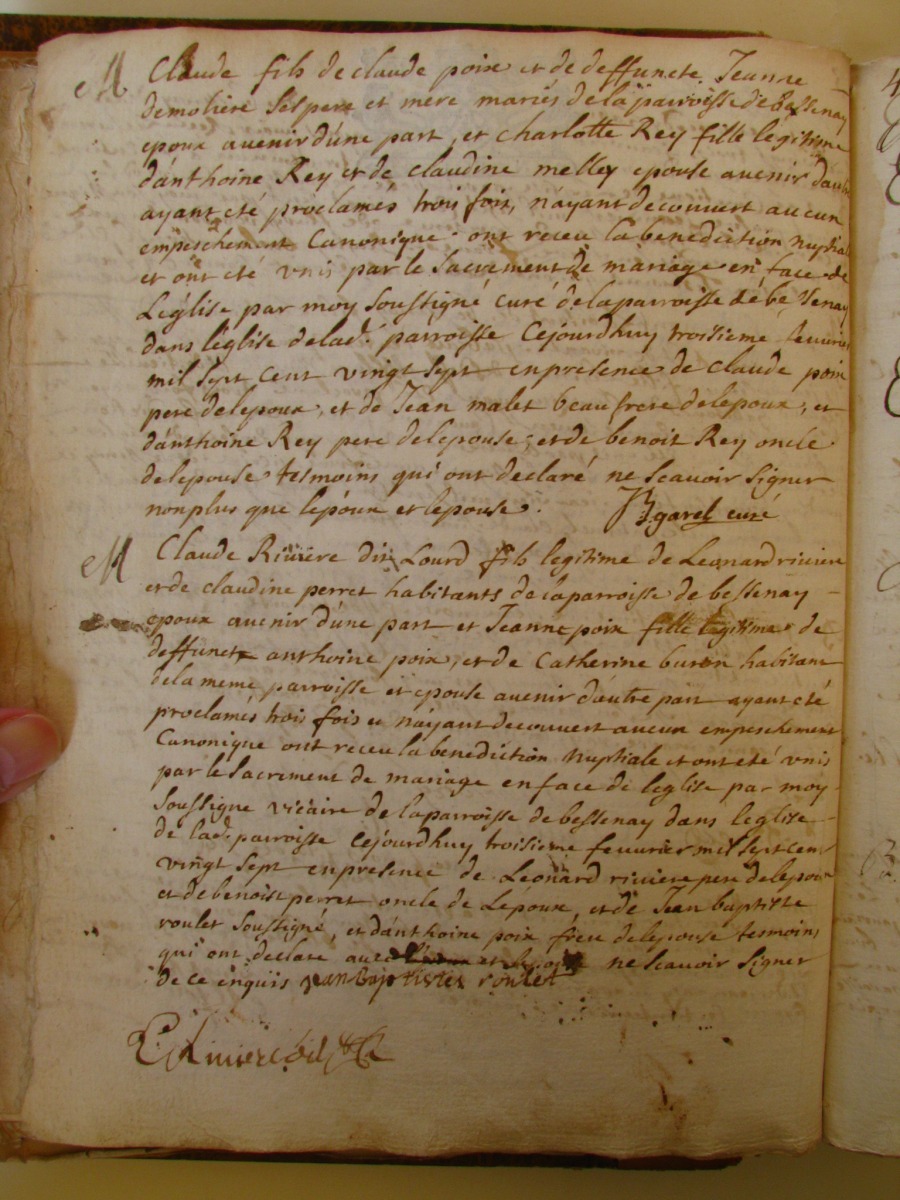 M Claude fils de claude poix et de deffuncte Jeanne
demoliere Ses pere et mere maries de la parroisse de Bessenay
epoux avenir d'une part, et Charlotte Rey fille legitime
d'anthoine Rey et de claudine melley epouse avenir d'autre
ayant eté proclamés trois fois, n'ayant decouvert aucun
empeschement Canonique ont receu la benediction nuptiale
et ont eté unis par le Sacrement de mariage en face de
Leglise par moy Soussigné curé de la parroisse de bessenay
dans l'eglise de lad. parroisse Cejourdhuy troisieme feuvrier
mil Sept Cent vingt Sept en presence de Claude poix
pere de lepoux, et de Jean malet beau frere de lepoux, et
d'anthoine Rey pere de lepouse, et de benoit Rey oncle
de lepouse tesmoins qui ont declaré ne Scavoir Signer
non plus que lépoux et lepouse. garel curé
M Claude Riviere dit Lourd fils legitime de Leonard riviere
et de claudine perret habitants de la parroisse de bessenay
epoux avenir d'une part et Jeanne poix fille legitime de
deffunct anthoine poix, et de Catherine buron habitant
de la meme parroisse et epouse avenir d'autre part ayant eté
proclamés trois fois et n'ayant decouvert aucun empeschement
Canonique ont receu la benediction Nuptiale et ont eté unis
par le Sacrement de mariage en face de leglise par moy
Soussigne vicaire de la parroisse de bessenay dans leglise
de lad. parroisse Cejourdhuy troisieme feuvrier mil Sept cent
vingt Sept en presence de Leonard riviere pere de lepoux
et de benoist perret oncle de Lepoux, et de Jean baptiste
roulet Soussigné, et d'anthoine poix frere de lepouse tesmoins
qui ont declare ne scavoir Signer
de ce enquis jean baptiste roulet